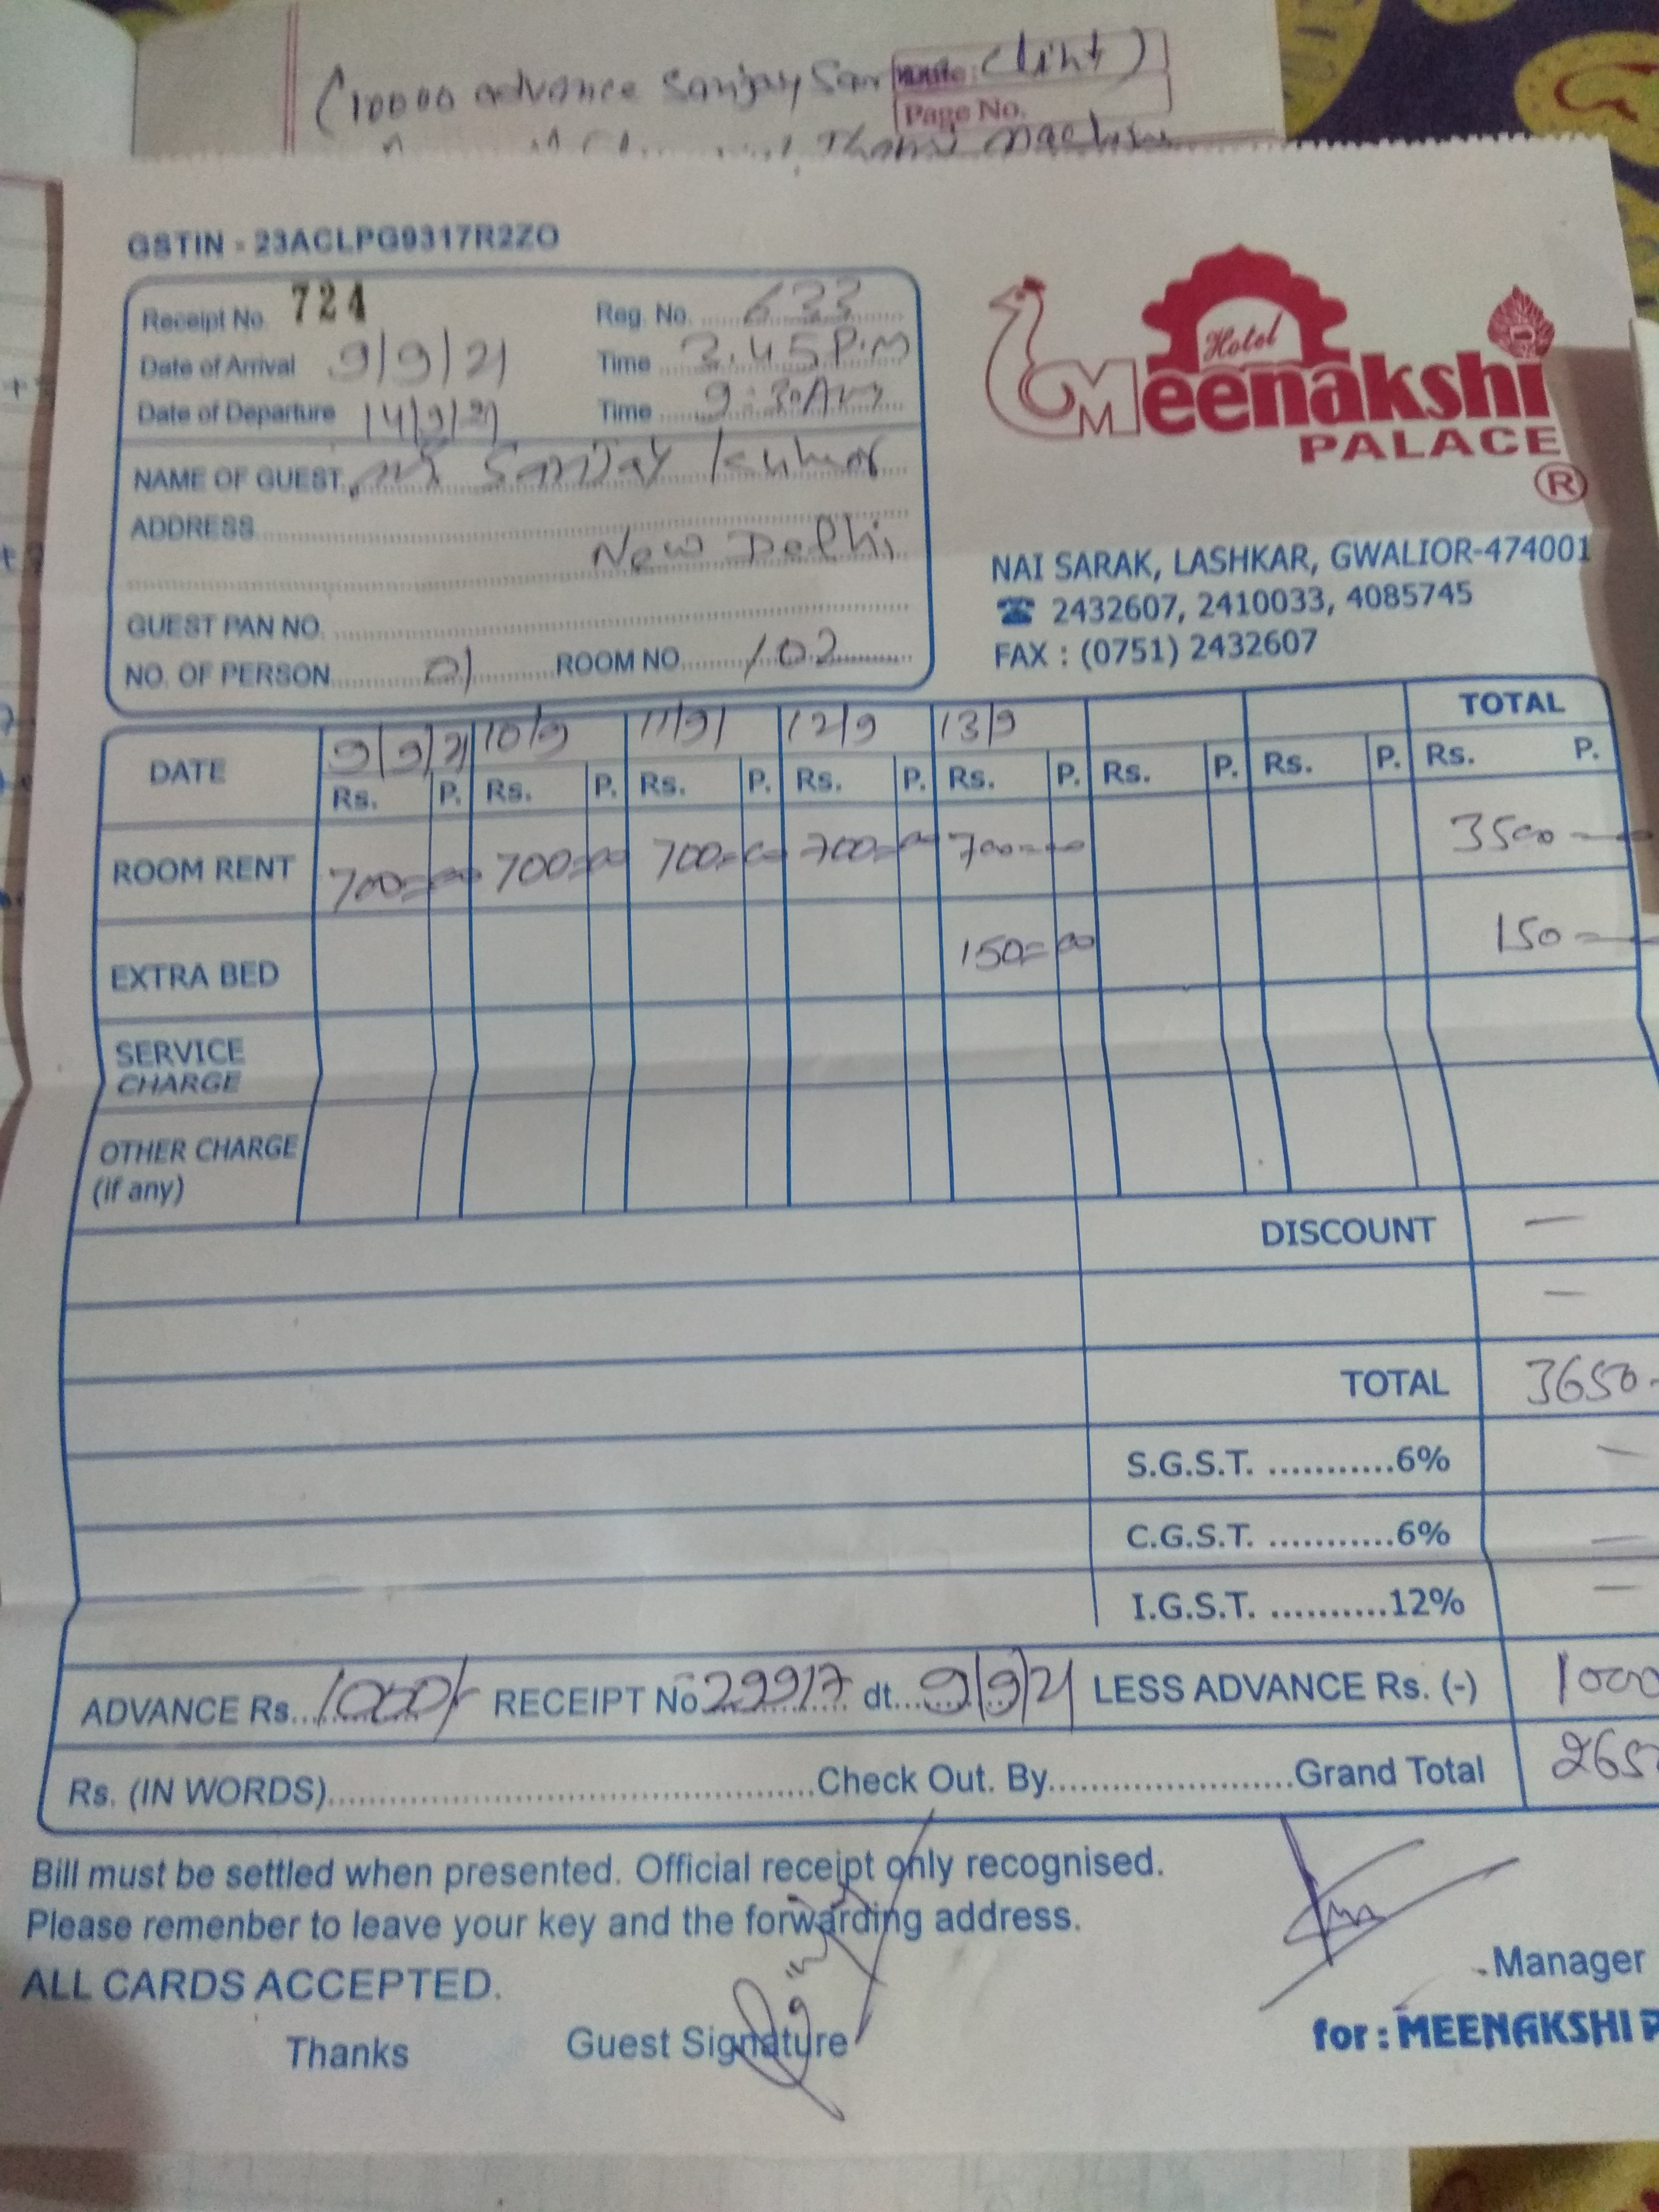 (10000 advance Sanjay Sar
Page No.
GSTIN - 23ACLPG9317R2ZO
Receipt No. 724 Reg. No. 633
Date of Arrival 9/9/21 Time 3.45 P.M
Date of Departure 14/9/21 Time 9:30 AM
NAME OF GUEST Mr Sanjay Kumar
ADDRESS
New Delhi
GUEST PAN NO.
NO. OF PERSON 01 ROOM NO. 102
Hotel
Meenakshi
PALACE
®
NAI SARAK, LASHKAR, GWALIOR-474001
☎ 2432607, 2410033, 4085745
FAX : (0751) 2432607
DATE 9/9/21 10/9 11/9 12/9 13/9 TOTAL
Rs. P. Rs. P. Rs. P. Rs. P. Rs. P. Rs. P. Rs. P. Rs. P.
ROOM RENT 700=00 700=00 700=00 700=00 700=00 3500
EXTRA BED 150=00 150=
SERVICE
CHARGE
OTHER CHARGE
(if any)
DISCOUNT —
—
TOTAL 3650
S.G.S.T. ...........6% —
C.G.S.T. ...........6% —
I.G.S.T. ..........12% —
ADVANCE Rs. 1000/- RECEIPT No 29917 dt. 9/9/21 LESS ADVANCE Rs. (-) 1000
Rs. (IN WORDS) Check Out. By Grand Total 265
Bill must be settled when presented. Official receipt only recognised.
Please remenber to leave your key and the forwarding address.
ALL CARDS ACCEPTED.
Manager
Thanks Guest Signature
for : MEENAKSHI P